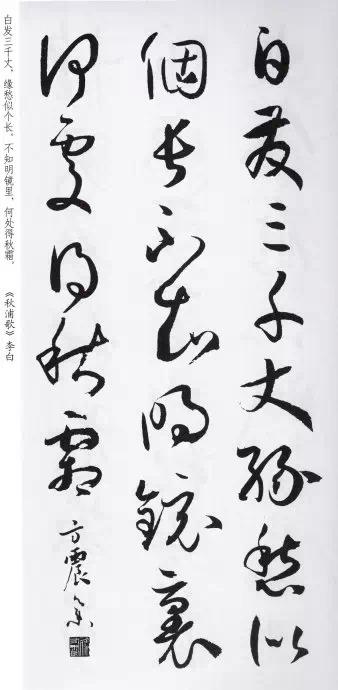 白髮三千丈緣愁似
個長不知明鏡裏
何處得秋霜
方震
白发三千丈，缘愁似个长。不知明镜里，何处得秋霜。 《秋浦歌》李白